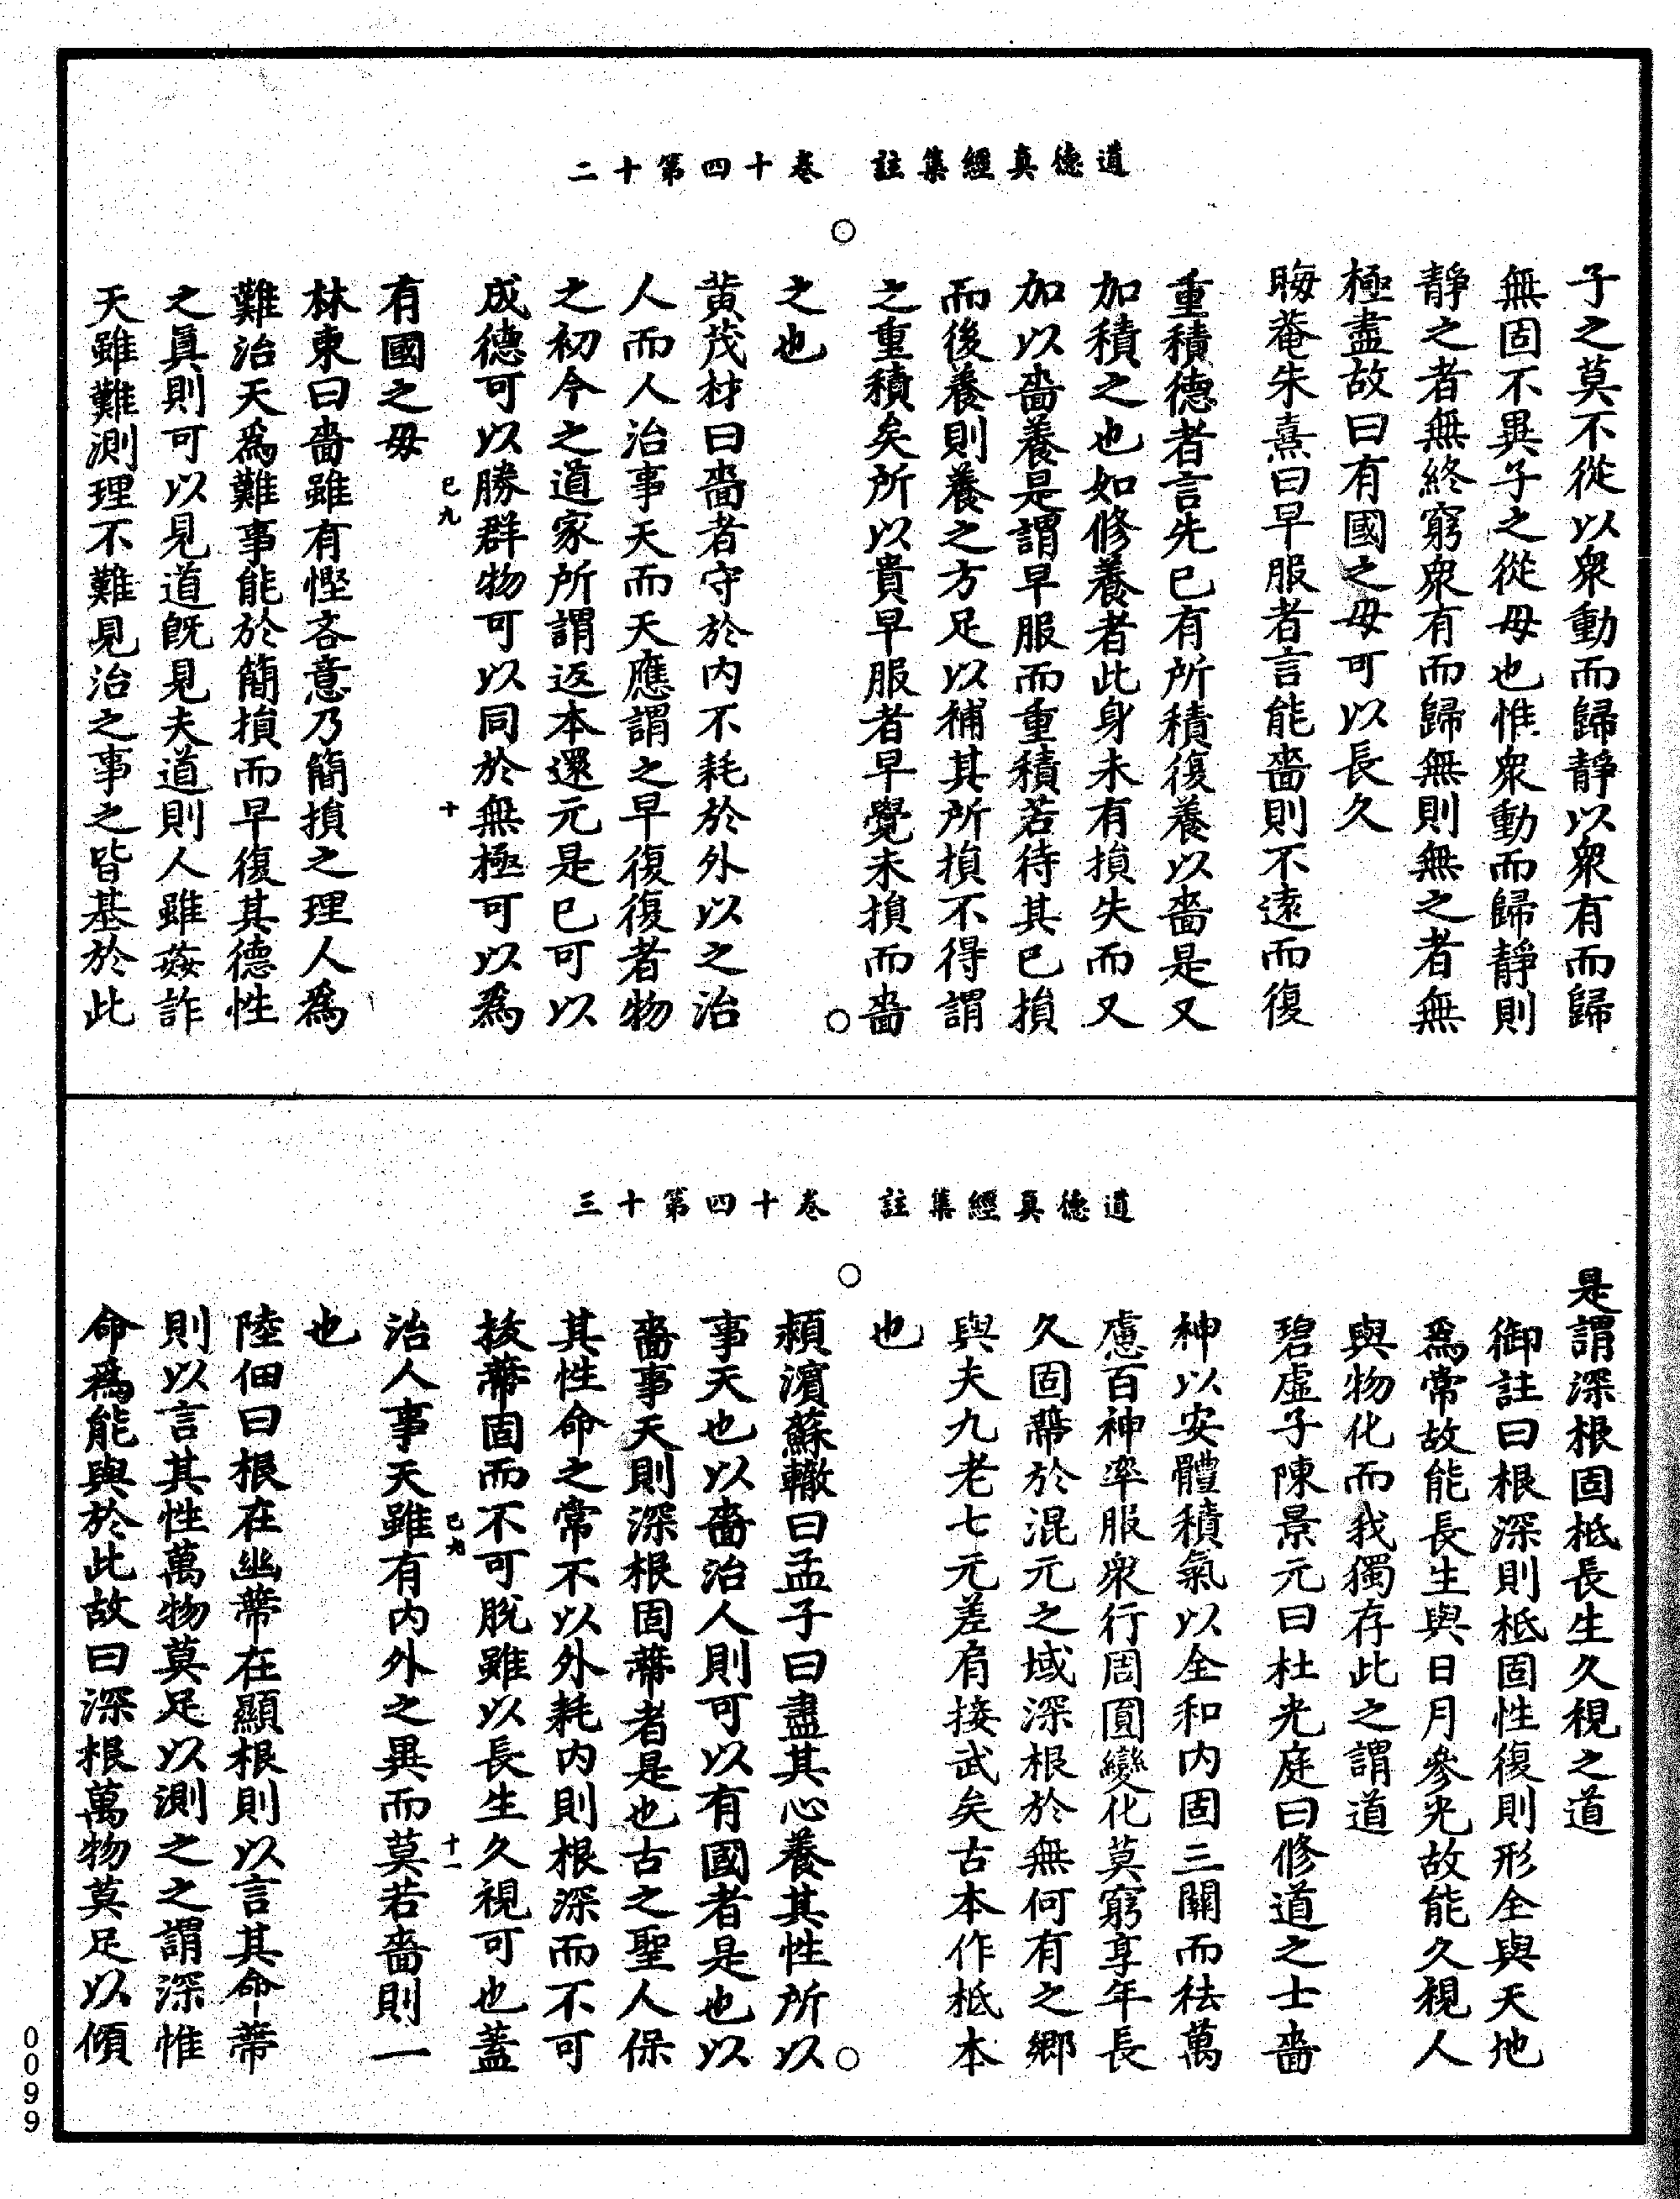 道德真經集註　卷十四第十二
子之莫不從以衆動而歸靜以衆有而歸
無固不異子之從母也惟衆動而歸靜則
靜之者無終窮衆有而歸無則無之者無
極盡故曰有國之母可以長久
晦菴朱熹曰早服者言能嗇則不遠而復
重積德者言先已有所積復養以嗇是又
加積之也如修養者此身未有損失而又
加以嗇養是謂早服而重積若待其已損
而後養則養之方足以補其所損不得謂
之重積矣所以貴早服者早覺未損而嗇
之也
黄茂材曰嗇者守於内不耗於外以之治
人而人治事天而天應謂之早復復者物
之初今之道家所謂返本還元是已可以
成德可以勝群物可以同於無極可以爲
已九　十
有國之母
林東曰嗇雖有慳吝意乃簡損之理人爲
難治天爲難事能於簡損而早復其德性
之眞則可以見道旣見夫道則人雖姦詐
天雖難測理不難見治之事之皆基於此
道德真經集註　卷十四第十三
是謂深根固柢長生久視之道
御註曰根深則柢固性復則形全與天地
爲常故能長生與日月參光故能久視人
與物化而我獨存此之謂道
碧虛子陳景元曰杜光庭曰修道之士嗇
神以安體積氣以全和内固三關而祛萬
慮百神率服衆行周圓變化莫窮享年長
久固蔕於混元之域深根於無何有之鄉
與夫九老七元差肩接武矣古本作柢本
也
頴濱蘇轍曰孟子曰盡其心養其性所以
事天也以嗇治人則可以有國者是也以
嗇事天則深根固蔕者是也古之聖人保
其性命之常不以外耗内則根深而不可
拔蔕固而不可脫雖以長生久視可也蓋
已九　十一
治人事天雖有内外之異而莫若嗇則一
也
陸佃曰根在幽蔕在顯根則以言其命蔕
則以言其性萬物莫足以測之之謂深惟
命爲能與於此故曰深根萬物莫足以傾
0099